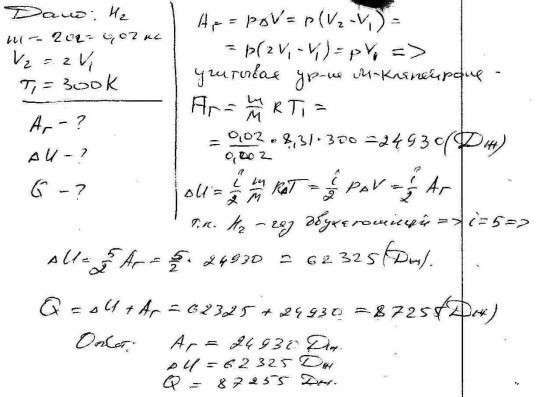 Дано: H₂
m = 20г = 0,02 кг
V₂ = 2V₁
T₁ = 300K
Aг - ?
ΔU - ?
Q - ?
Aг = pΔV = p(V₂ - V₁) =
= p(2V₁ - V₁) = pV₁ =>
учитывая ур-ие М-Клапейрона -
Aг = m/M RT₁ =
= 0,02/0,002 · 8,31 · 300 = 24930 (Дж)
ΔU = i/2 m/M RΔT = i/2 pΔV = i/2 Aг
т.к. H₂ - газ двухатомный => i = 5 =>
ΔU = 5/2 Aг = 5/2 · 24930 = 62325 (Дж).
Q = ΔU + Aг = 62325 + 24930 = 87255 (Дж)
Ответ: Aг = 24930 Дж.
ΔU = 62325 Дж
Q = 87255 Дж.